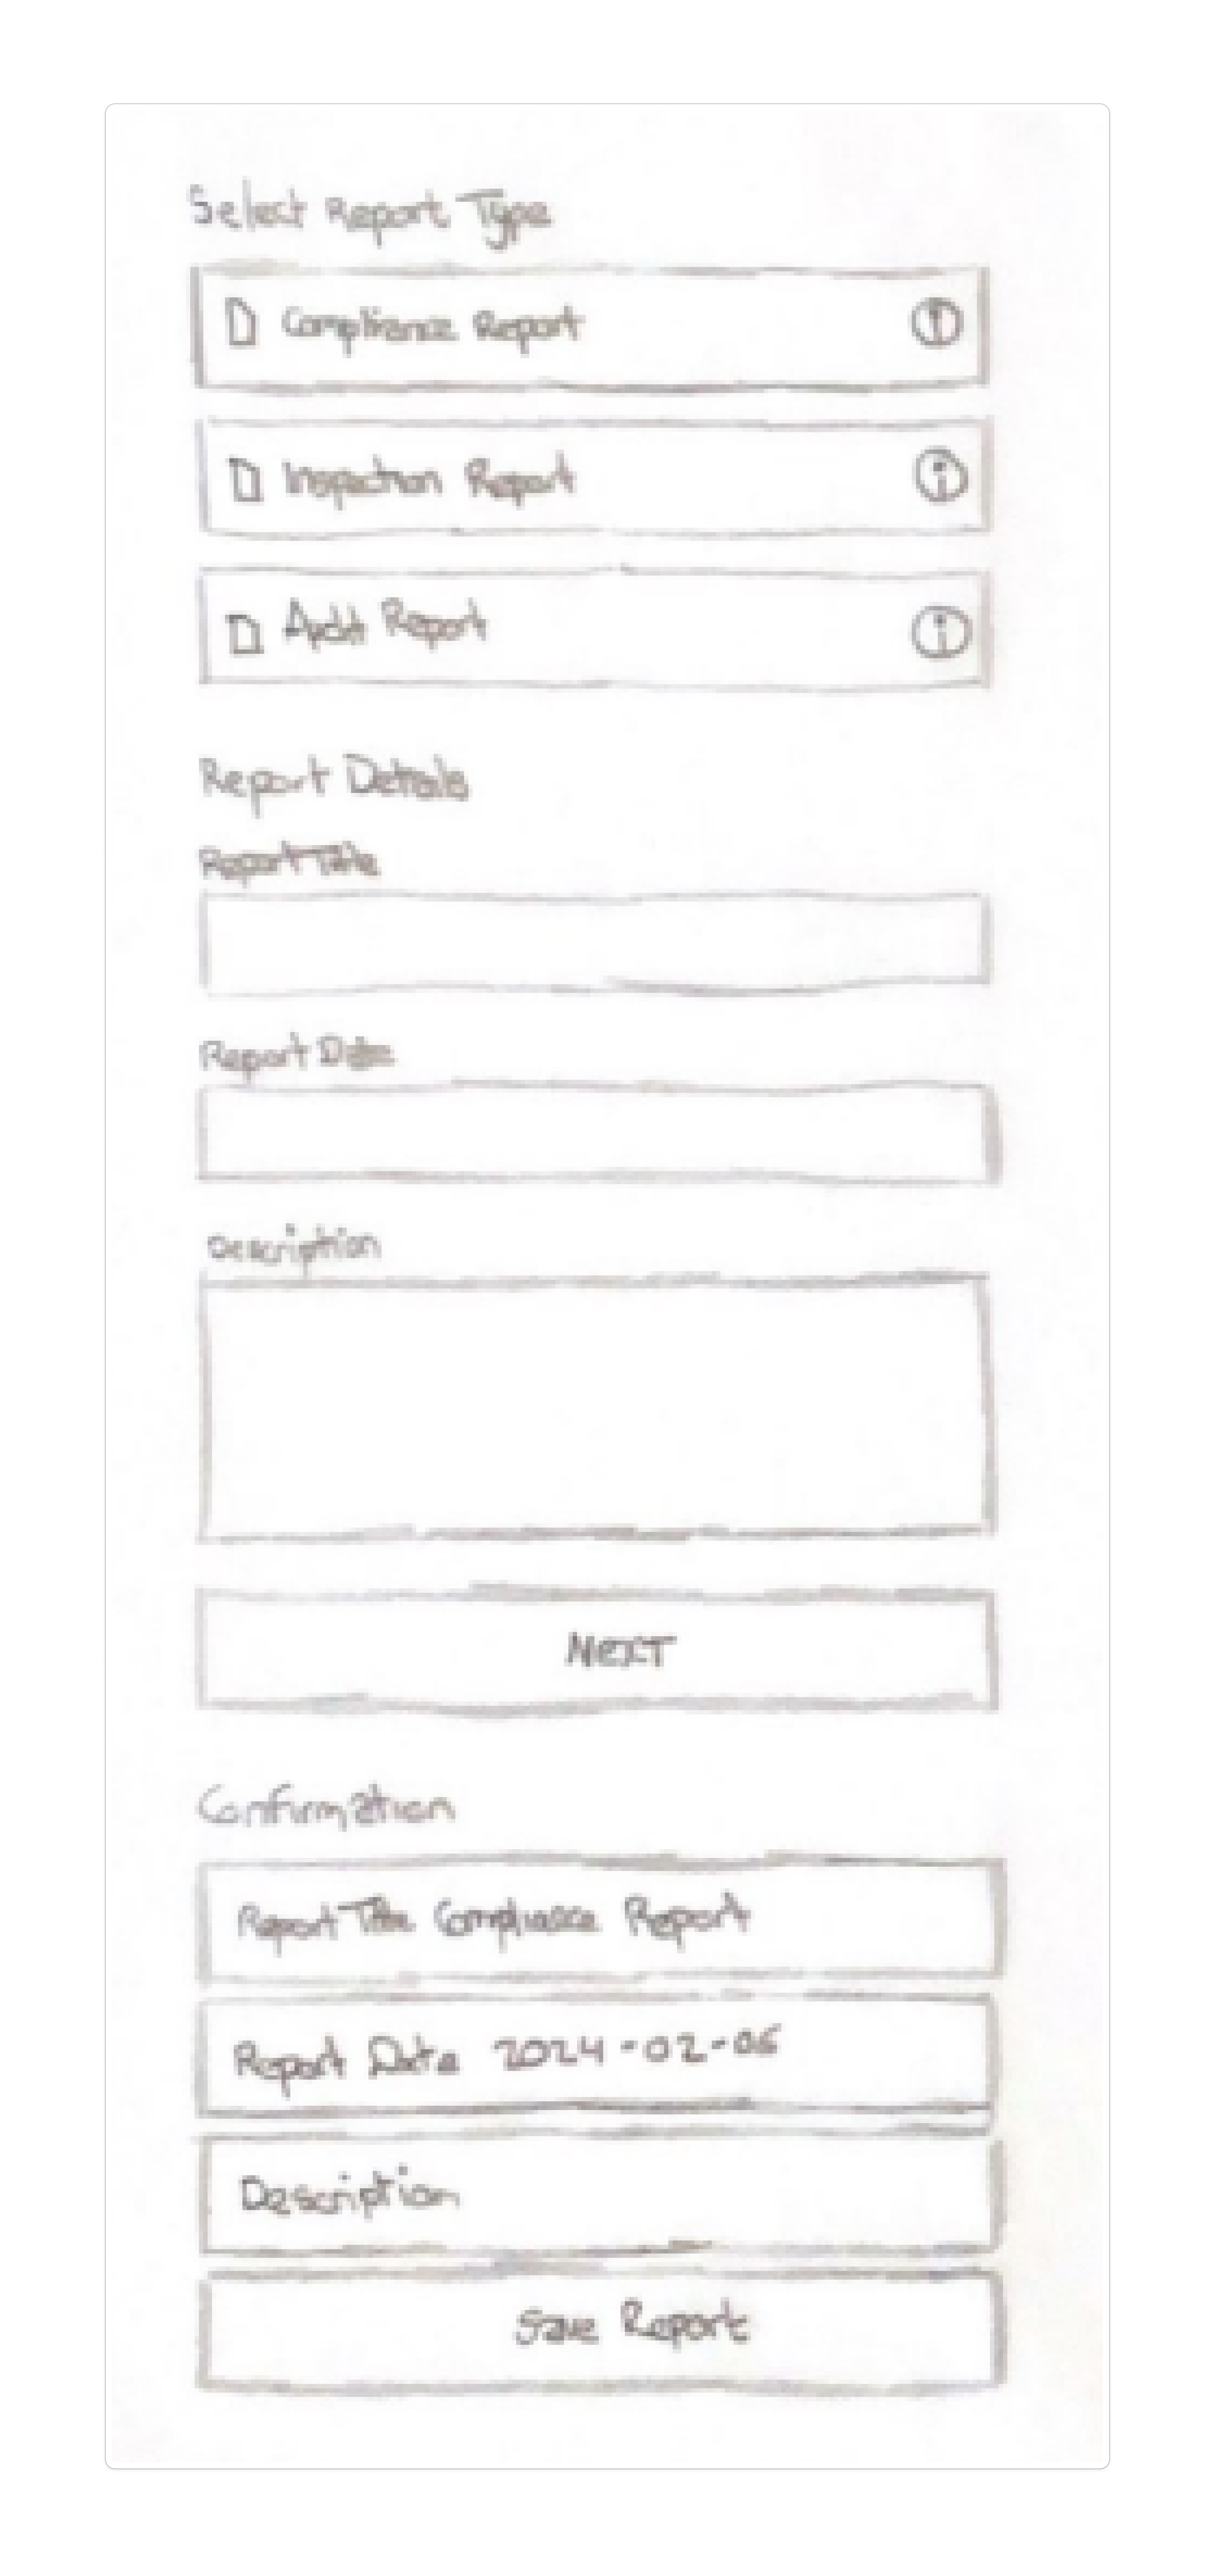 Select Report Type
Compliance Report
Inspection Report
Audit Report
Report Details
Report Title
Report Date
Description
NEXT
Confirmation
Report Title Compliance Report
Report Date 2024-02-05
Description
Save Report